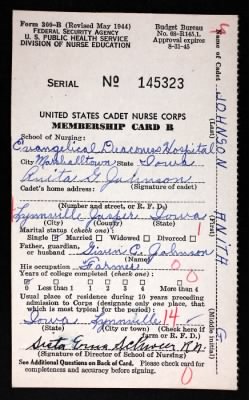 Form 300-B (Revised May 1944)
FEDERAL SECURITY AGENCY
U. S. PUBLIC HEALTH SERVICE
DIVISION OF NURSE EDUCATION
Budget Bureau
No. 68-R145.1.
Approval expires
8-31-45
SERIAL № 145323
UNITED STATES CADET NURSE CORPS
MEMBERSHIP CARD B
School of Nursing:
Evangelical Deaconess Hospital
City Marshalltown State Iowa
Anita G. Johnson
Cadet's home address: (Signature of cadet)
(Number and street, or R. F. D.)
Lynnville Jasper Iowa
(City) (County) (State)
Marital status (check one): 1
Single Married Widowed Divorced
Father, guardian,
or husband
Johnson
(Name)
His occupation Farmer 0 0
Years of college completed (check one):
0 Less than 1 1 2 3 4 More than 4
Usual place of residence during 10 years preceding
admission to Corps (designate only one place, which
is most typical for the period):
Iowa Lynnville 14
(State) (City or town) (Or check here if
Farm or R. F. D.)
Sister
(Signature of Director of School of Nursing)
See Additional Questions on Back of Card. Please check card for
completeness and accuracy before signing.
0
Name of Cadet
JOHNSON
(Last)
ANITA
(First)
G
(Middle initial)